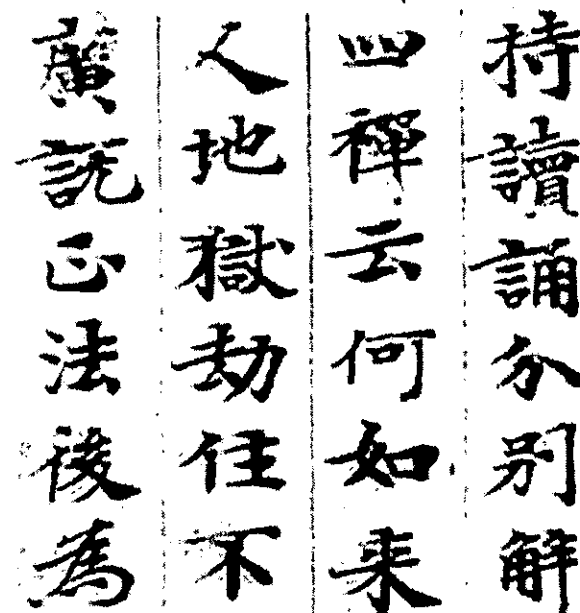 持讀誦分別解
四禪云何如来
人地獄劫住不
廣說正法後為